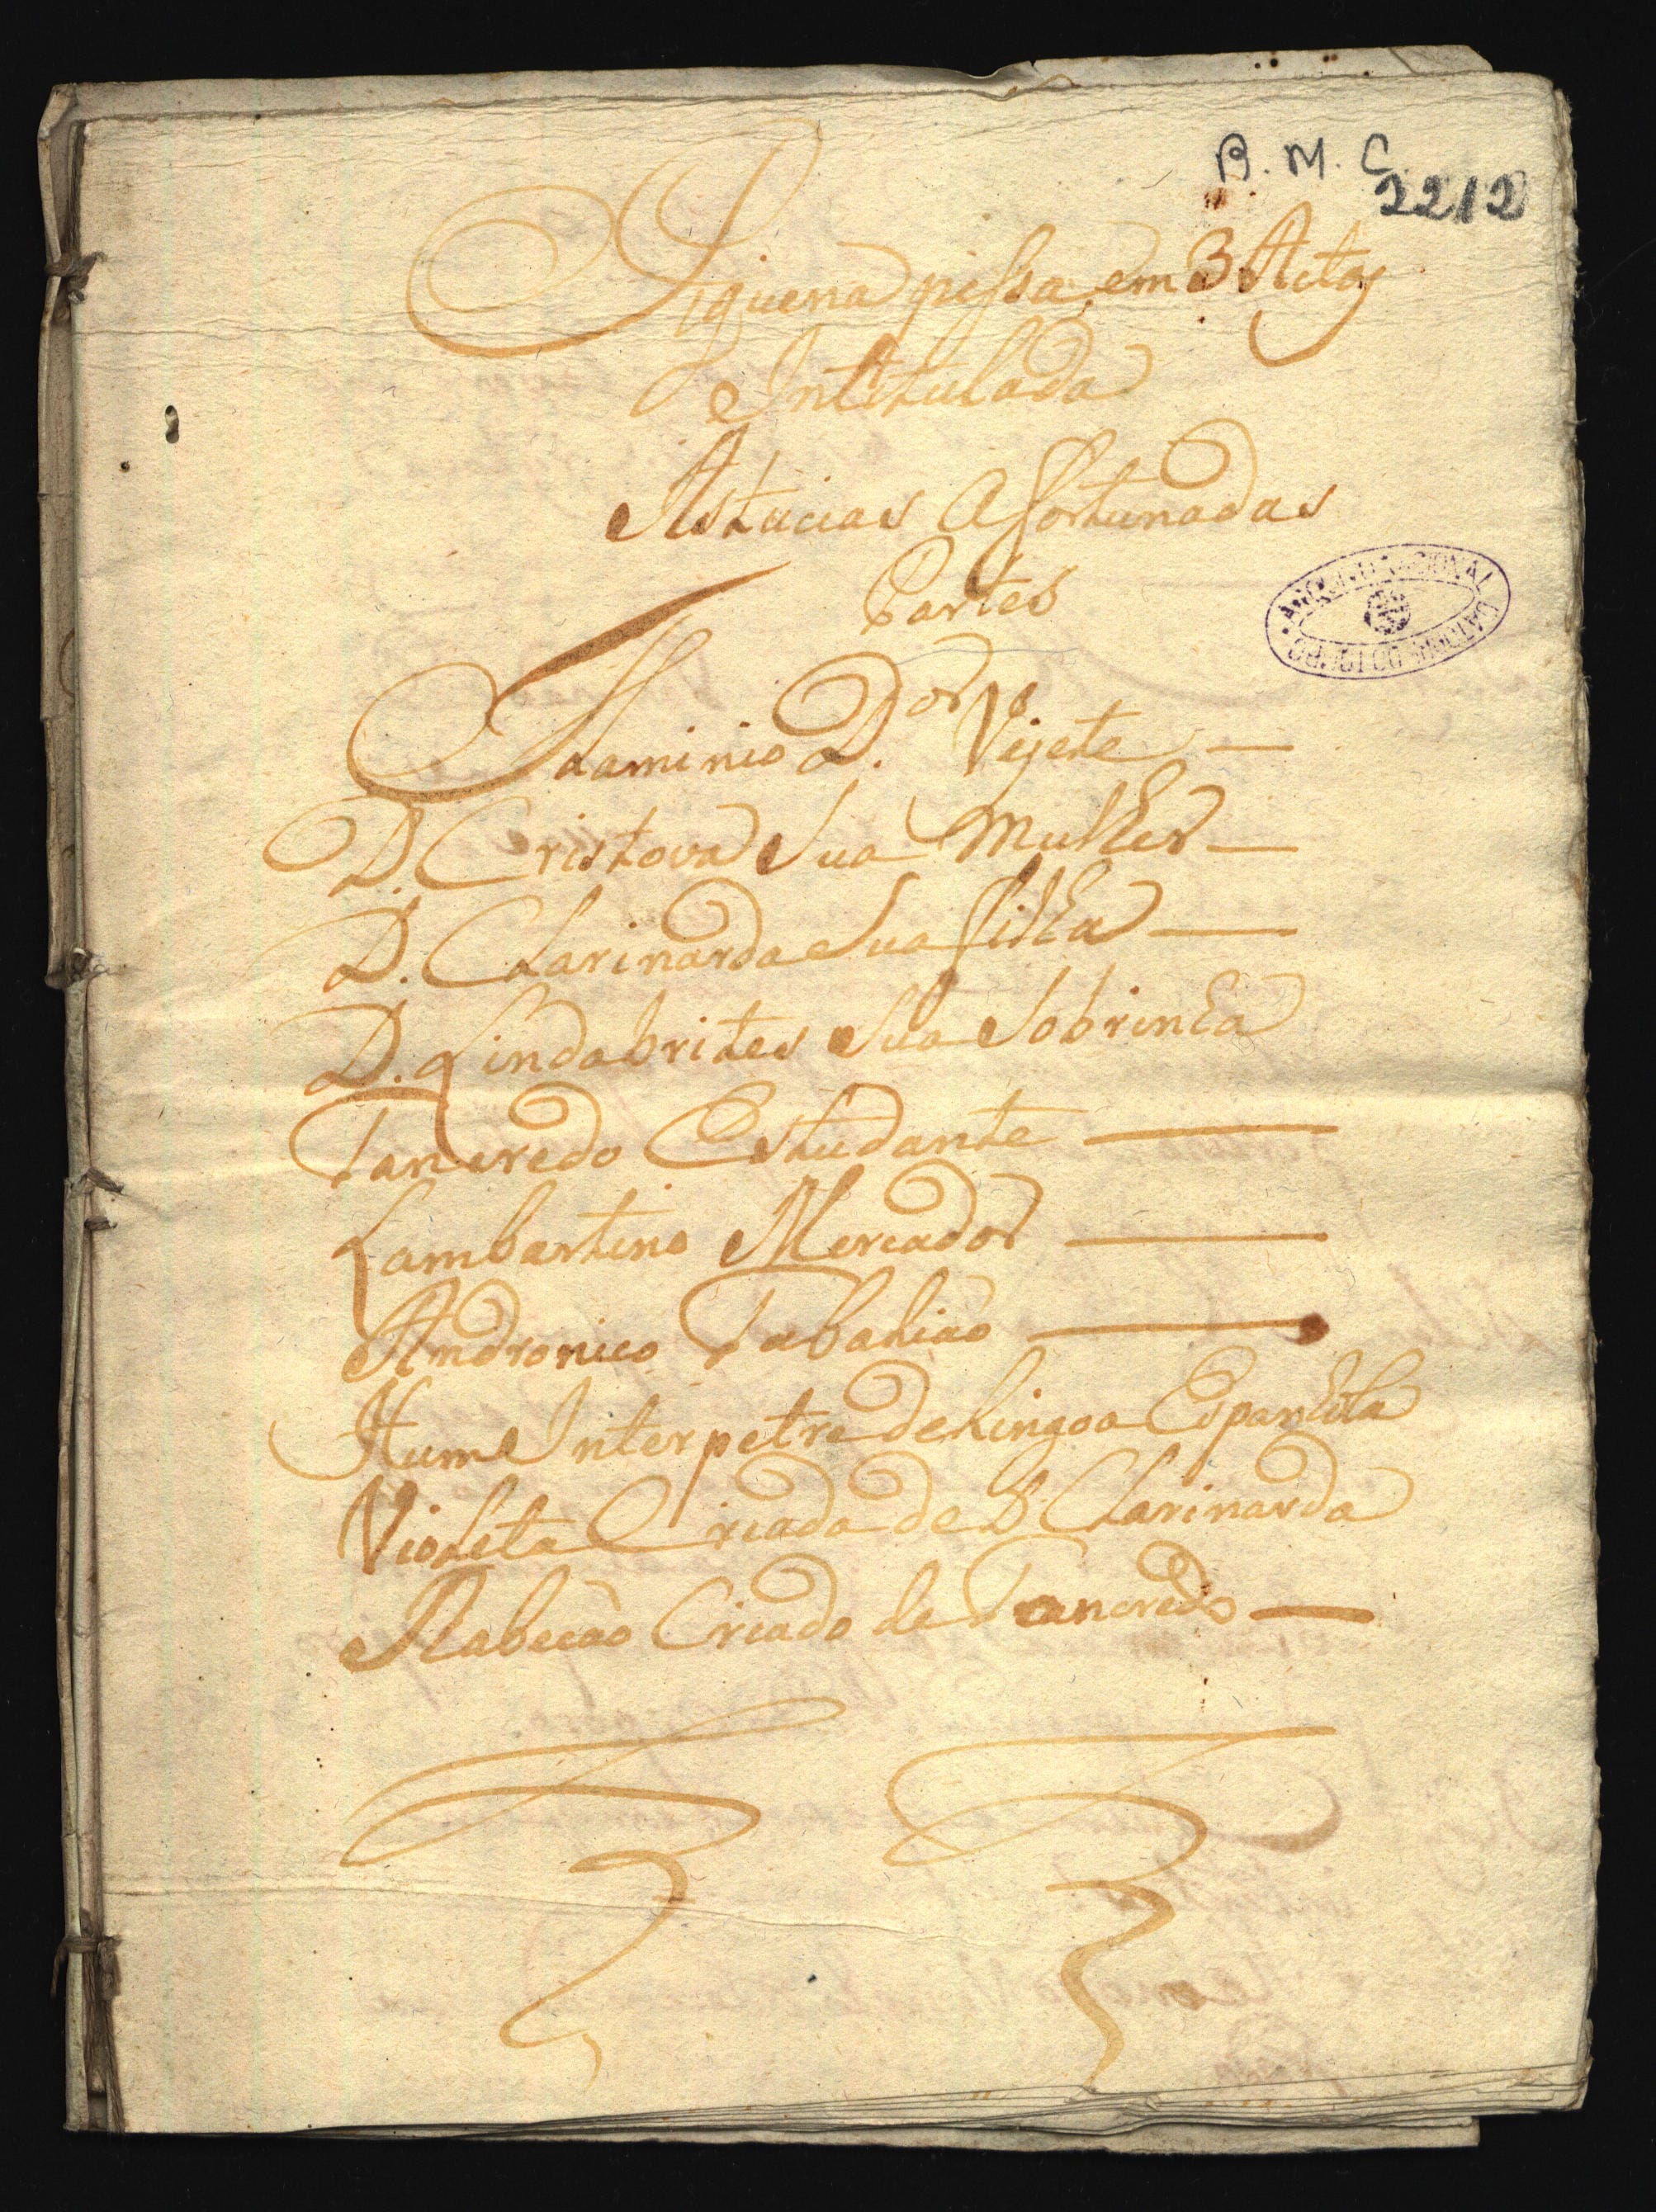 R. M. C
2212
Piquena pessa em 3 Actos
Intitulada
Astucias Afortunadas
Partes
Flaminio D.or Vejete —
D. Cristova Sua Mulher —
D. Clarinarda Sua filha —
D. Lindabrites Sua Sobrinha
Tancredo Estudante —
Lambertino Mercador —
Andronico Tabalião —
Hum Interpetre de Lingoa Espanhola
Violeta Criada de D. Clarinarda
Rabecão Criado de Tancredo —
ARQUIVO NACIONAL DA TORRE DO TOMBO